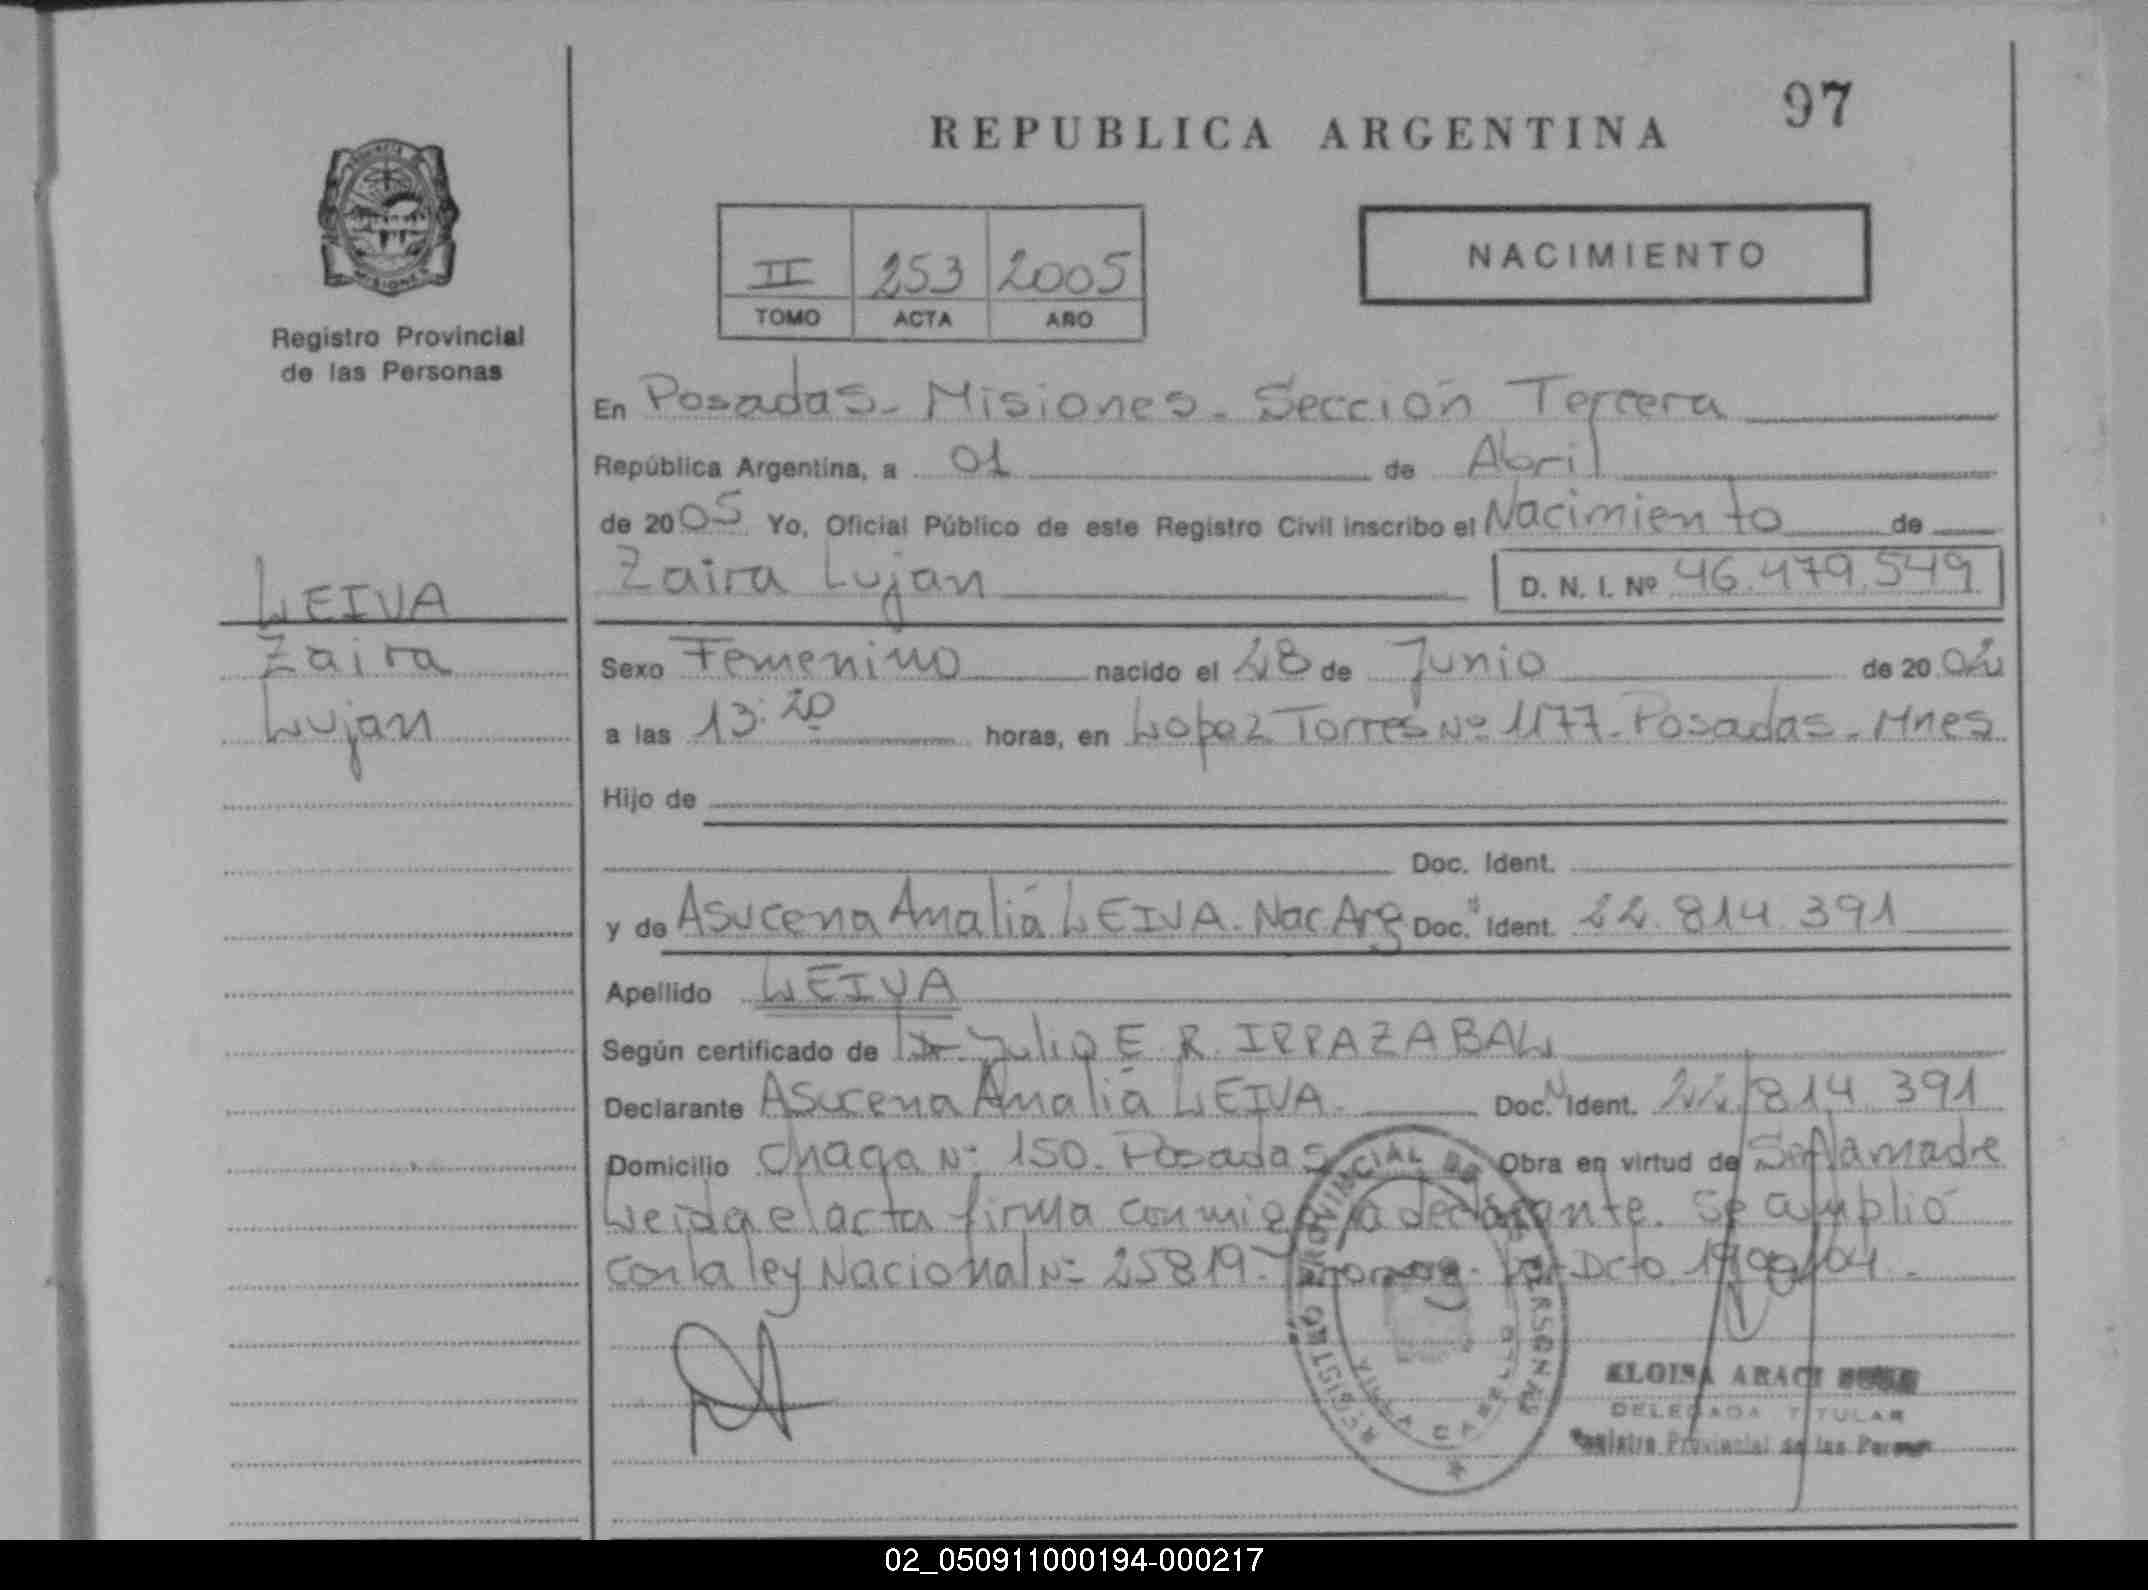 97
REPUBLICA ARGENTINA
NACIMIENTO
II 253 2005
TOMO ACTA AÑO
Registro Provincial
de las Personas
LEIVA
Zaira
Lujan
En Posadas - Misiones - Sección Tercera
República Argentina, a 01 de Abril
de 2005 Yo, Oficial Público de este Registro Civil inscribo el Nacimiento de
Zaira Lujan D. N. I. Nº 46.479.549
Sexo Femenino nacido el 28 de Junio de 2002
a las 13:20 horas, en Lopez Torres Nº 1177 - Posadas - Mnes
Hijo de
Doc. Ident.
y de Asucena Amalia LEIVA. Nac Arg Doc. Ident. 22.814.391
Apellido LEIVA
Según certificado de Dr. Julio E. R. IRRAZABAL
Declarante Asucena Amalia LEIVA. Doc. Ident. 22.814.391
Domicilio Chaga Nº 150. Posadas Obra en virtud de la madre
Leida el acta firma conmigo la declarante. Se amplió
con la ley Nacional Nº 25819 - Dcto
REGISTRO PROVINCIAL DE PERSONAS
VILLA CABELLO
ELOISA ARACI
DELEGADA TITULAR
Registro Provincial de las Personas
02_050911000194-000217